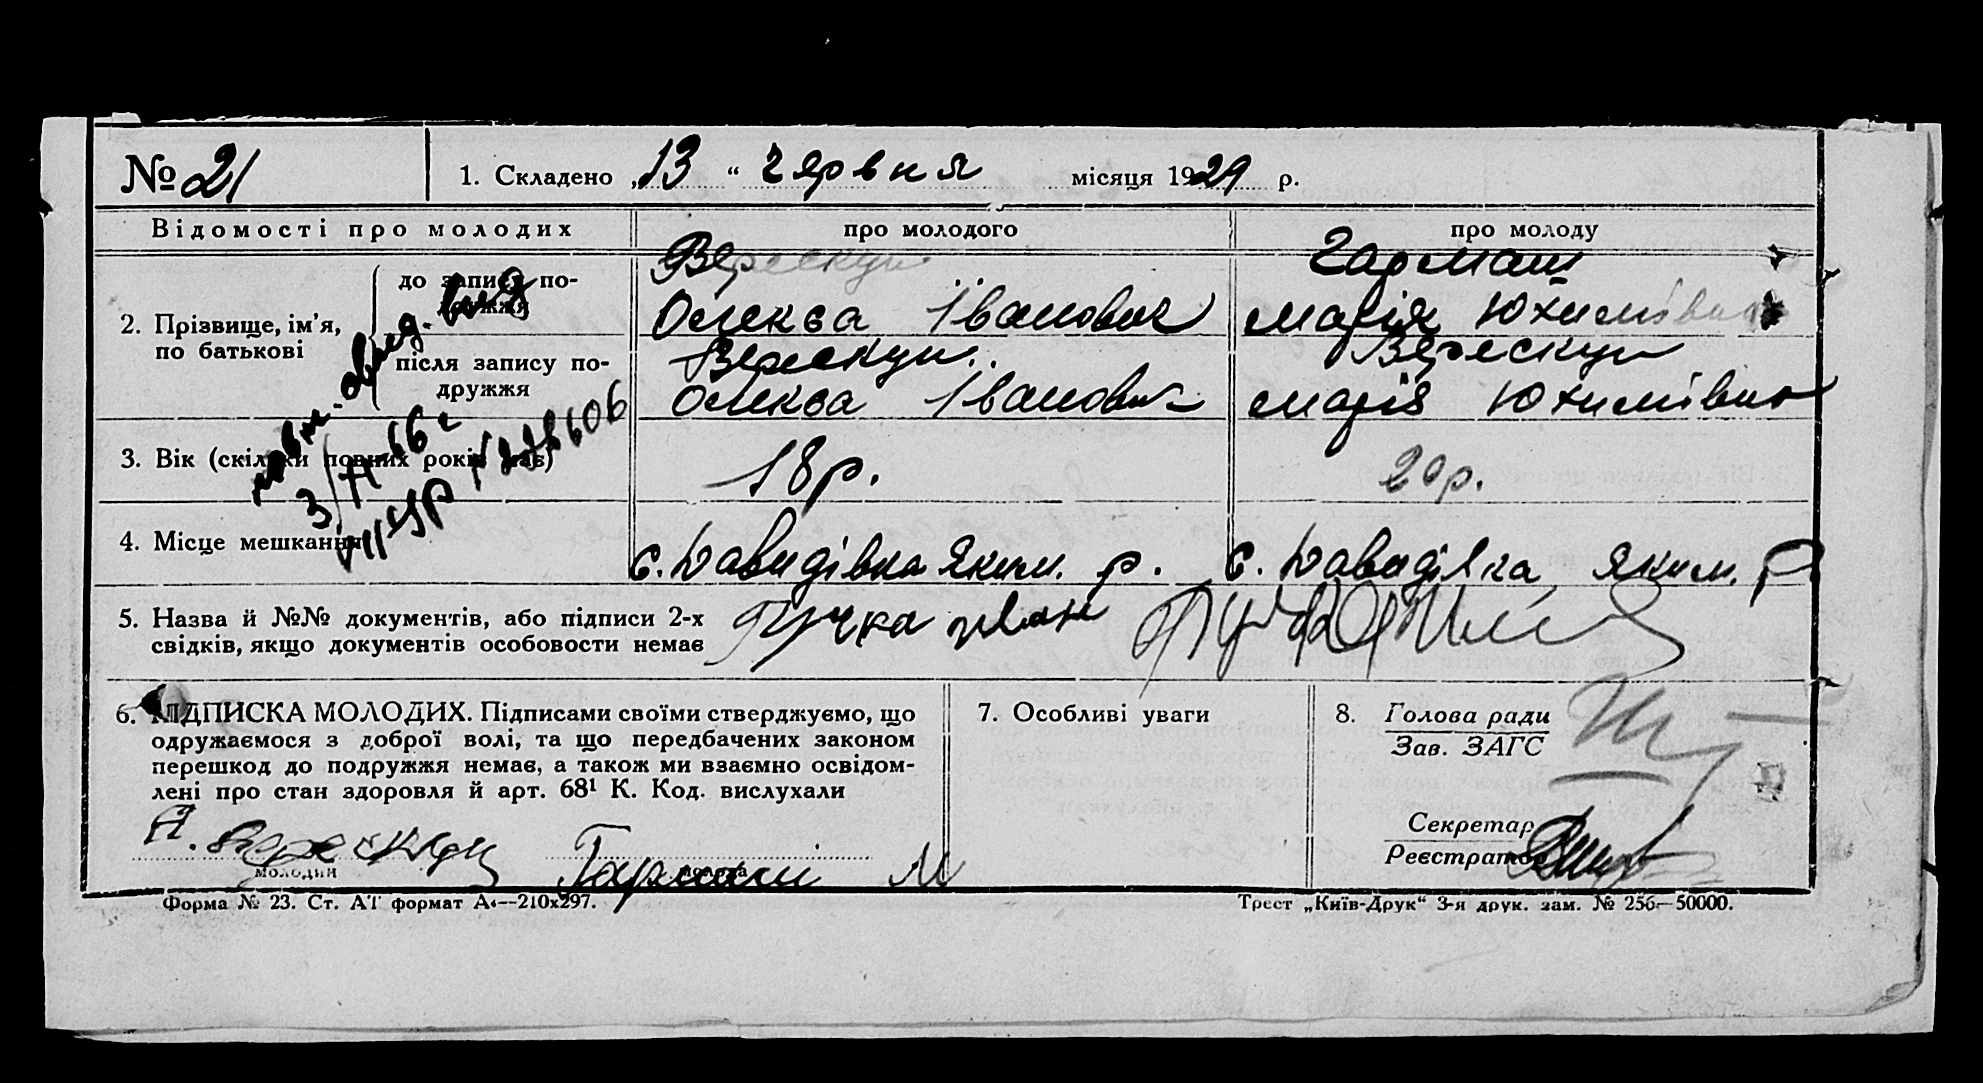 № 21
1. Складено „13“ червня місяця 1929 р.
Відомості про молодих
про молодого
про молоду
2. Прізвище, ім'я,
по батькові
до запису по-
дружжя
Верескун
Олекса Іванович
Гармаш
Марія Юхимівна
після запису по-
дружжя
Верескун
Олекса Іванович
Верескун
Марія Юхимівна
3. Вік (скільки повних років мав)
18 р.
20 р.
4. Місце мешкання
с. Давидівка Яким. р.
с. Давидівка Яким. Р
5. Назва й №№ документів, або підписи 2-х
свідків, якщо документів особовости немає
Пучка Иван
6. ПІДПИСКА МОЛОДИХ. Підписами своїми стверджуємо, що
одружаємося з доброї волі, та що передбачених законом
перешкод до подружжя немає, а також ми взаємно освідом-
лені про стан здоровля й арт. 68¹ К. Код. вислухали
А. Верескун
Гармаш М
молодий
молода
7. Особливі уваги
8. Голова ради
Зав. ЗАГС
Секретар
Реєстратор
Форма № 23. Ст. АТ формат А₄—210х297.
Трест „Київ-Друк“ 3-я друк. зам. № 256—50000.